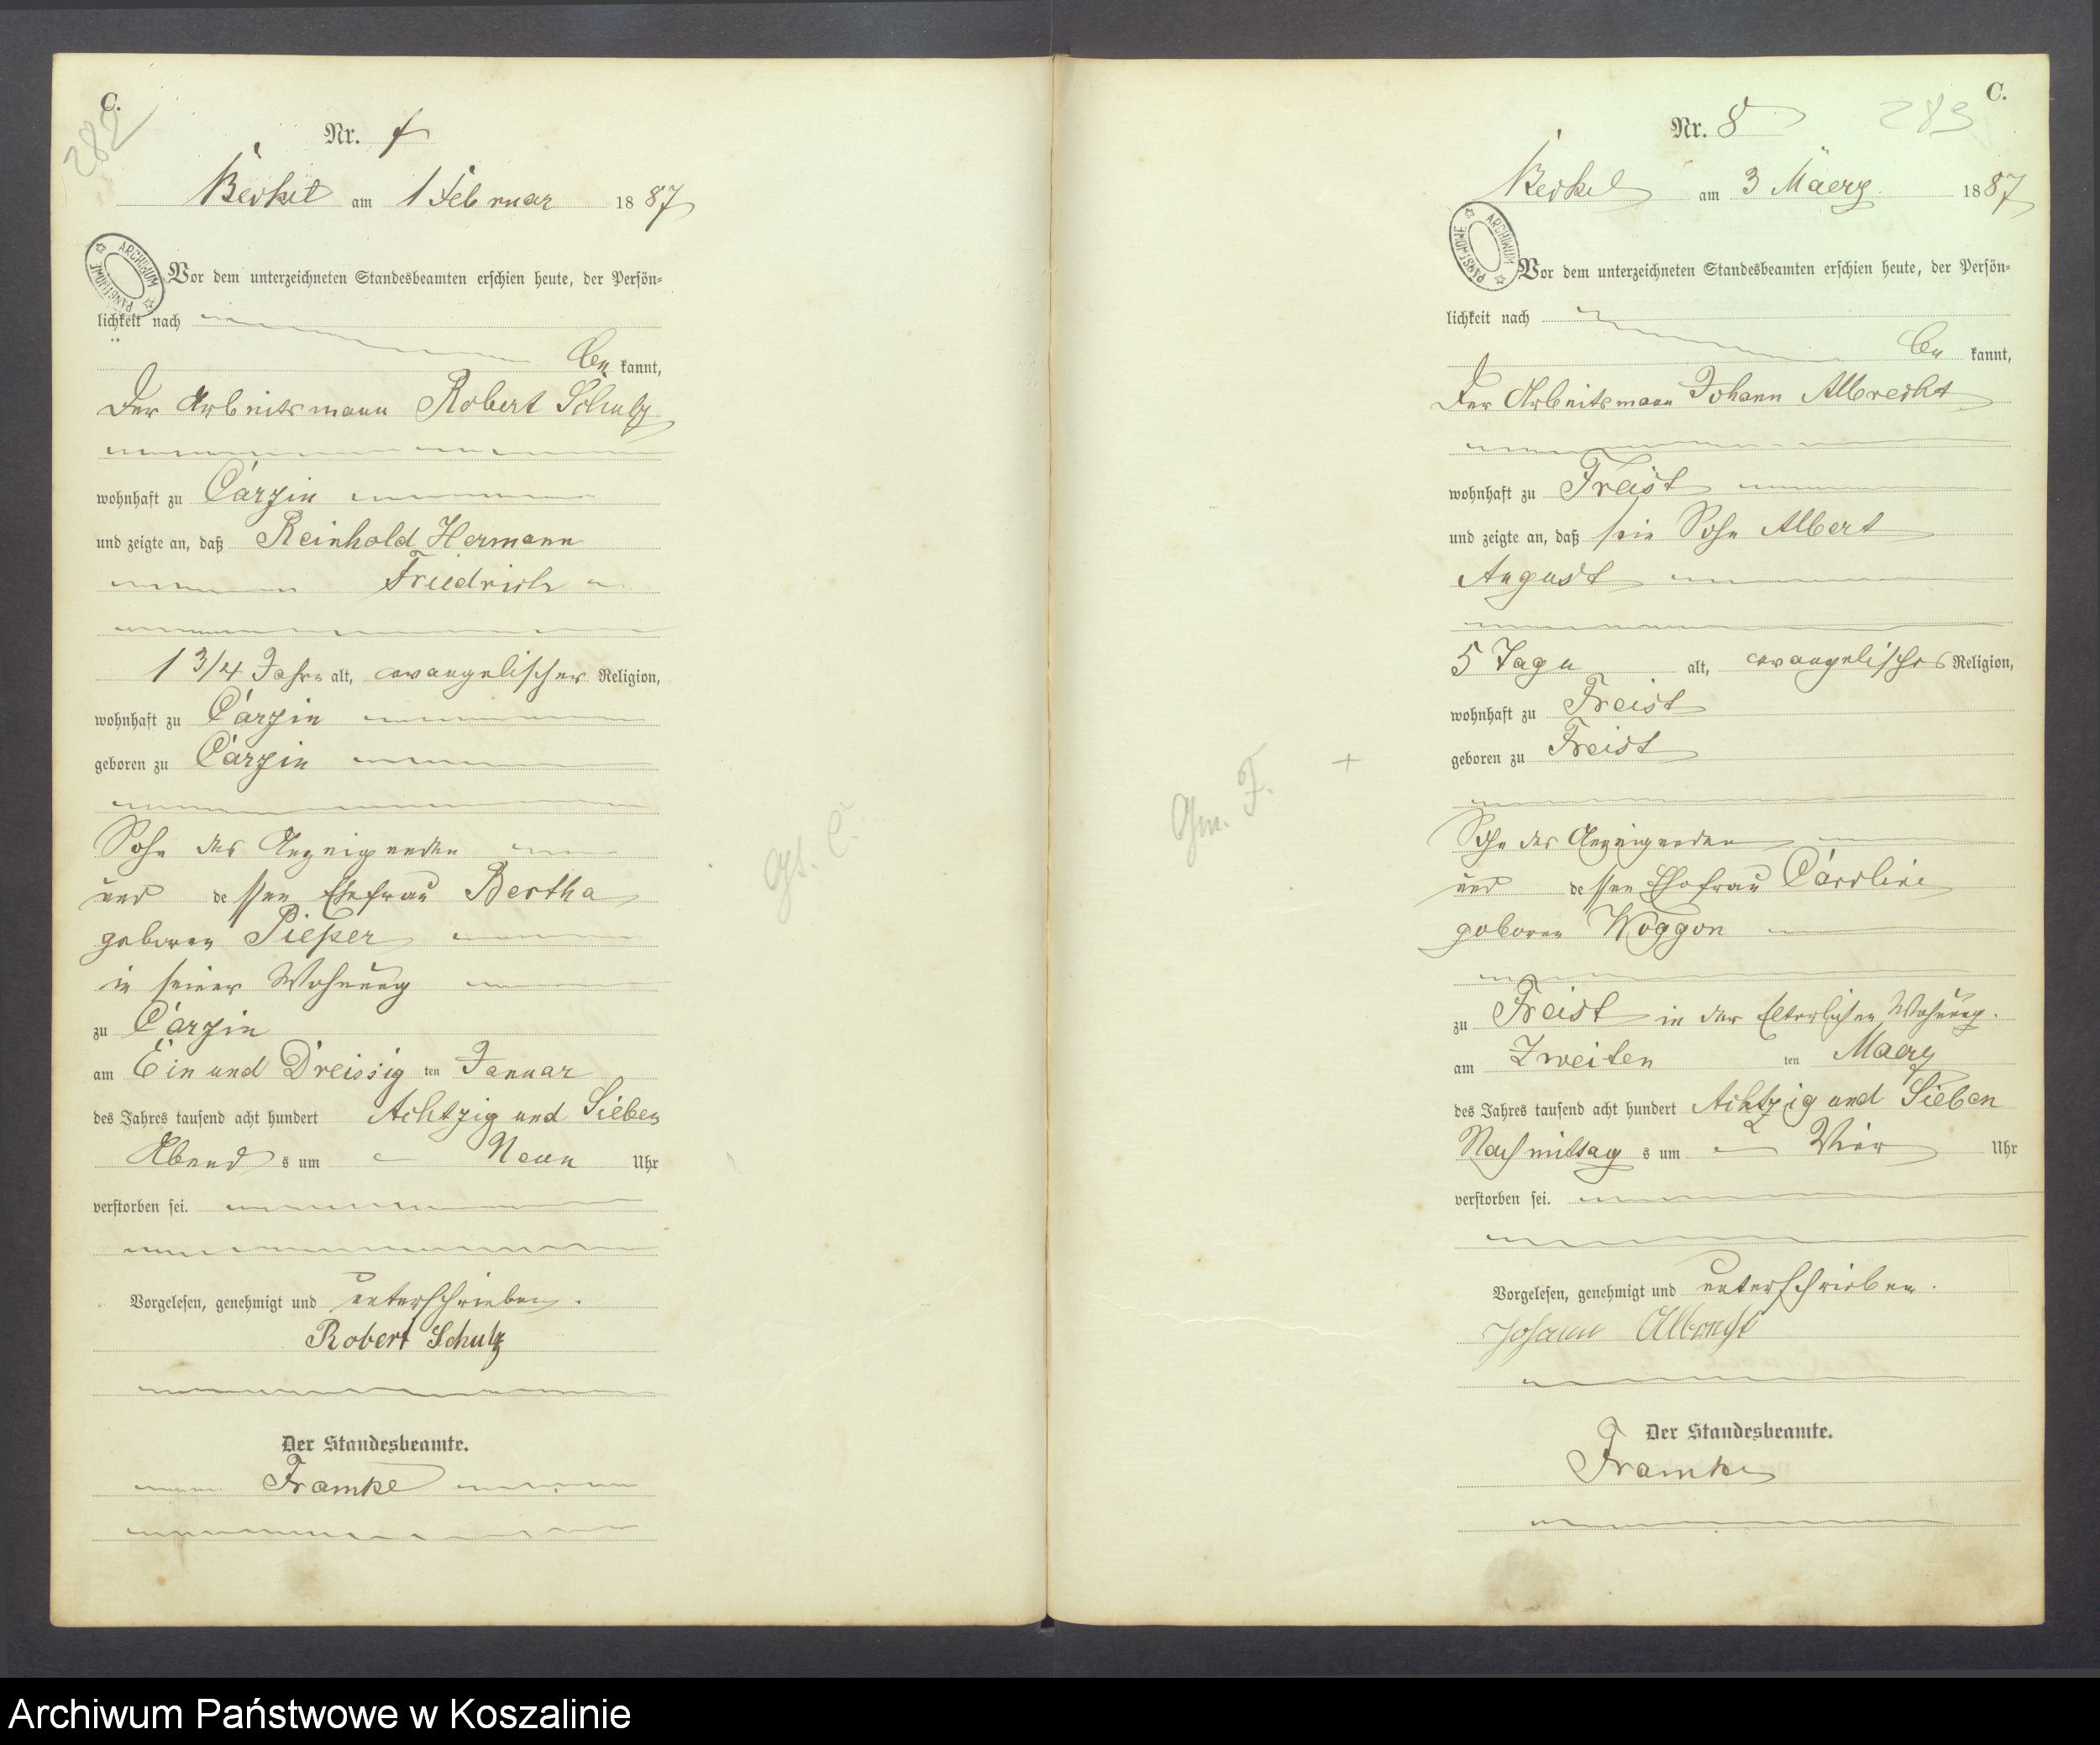 C.
282
Nr. 7
Beckel am 1 Februar 1887
ARCHIWUM PAŃSTWOWE
Vor dem unterzeichneten Standesbeamten erschien heute, der Persön=
lichkeit nach
be kannt,
Der Arbeitsmann Robert Schulz
wohnhaft zu Carzin
und zeigte an, daß Reinhold Hermann
Friedrich
1 3/4 Jahre alt, evangelischer Religion,
wohnhaft zu Carzin
geboren zu Carzin
Sohn des Anzeigenden
und dessen Ehefrau Bertha
geboren Pieper
in seiner Wohnung
zu Carzin
am Ein und Dreissig ten Januar
des Jahres tausend acht hundert Achtzig und Sieben
Abend s um Neun Uhr
verstorben sei.
Vorgelesen, genehmigt und unterschrieben.
Robert Schulz
Der Standesbeamte.
Framke
C.
283
Nr. 8
Beckel am 3 Maerz 1887
ARCHIWUM PAŃSTWOWE
Vor dem unterzeichneten Standesbeamten erschien heute, der Persön=
lichkeit nach
be kannt,
Der Arbeitsmann Johann Albrecht
wohnhaft zu Freist
und zeigte an, daß sein Sohn Albert
August
5 Tage alt, evangelischer Religion,
wohnhaft zu Freist
geboren zu Freist
Sohn des Anzeigenden
und dessen Ehefrau Caroline
geboren Woggon
zu Freist in der Elterlichen Wohnung.
am Zweiten ten Maerz
des Jahres tausend acht hundert Achtzig und Sieben
Nachmittag s um Vier Uhr
verstorben sei.
Vorgelesen, genehmigt und unterschrieben.
Johann Albrecht
Der Standesbeamte.
Framke
Archiwum Państwowe w Koszalinie